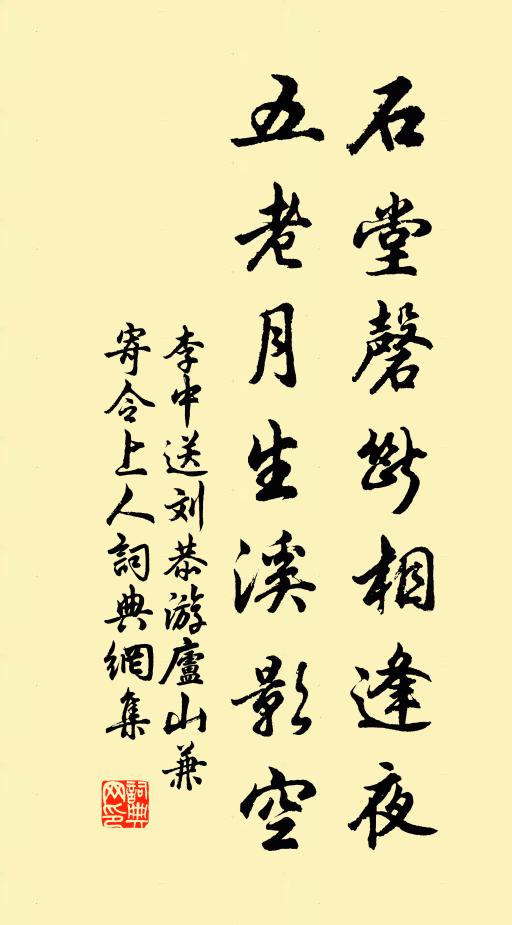 石堂磬断相逢夜
五老月生溪影空
李中送刘恭游廬山兼
寄令上人詞典網集
詞典
网印